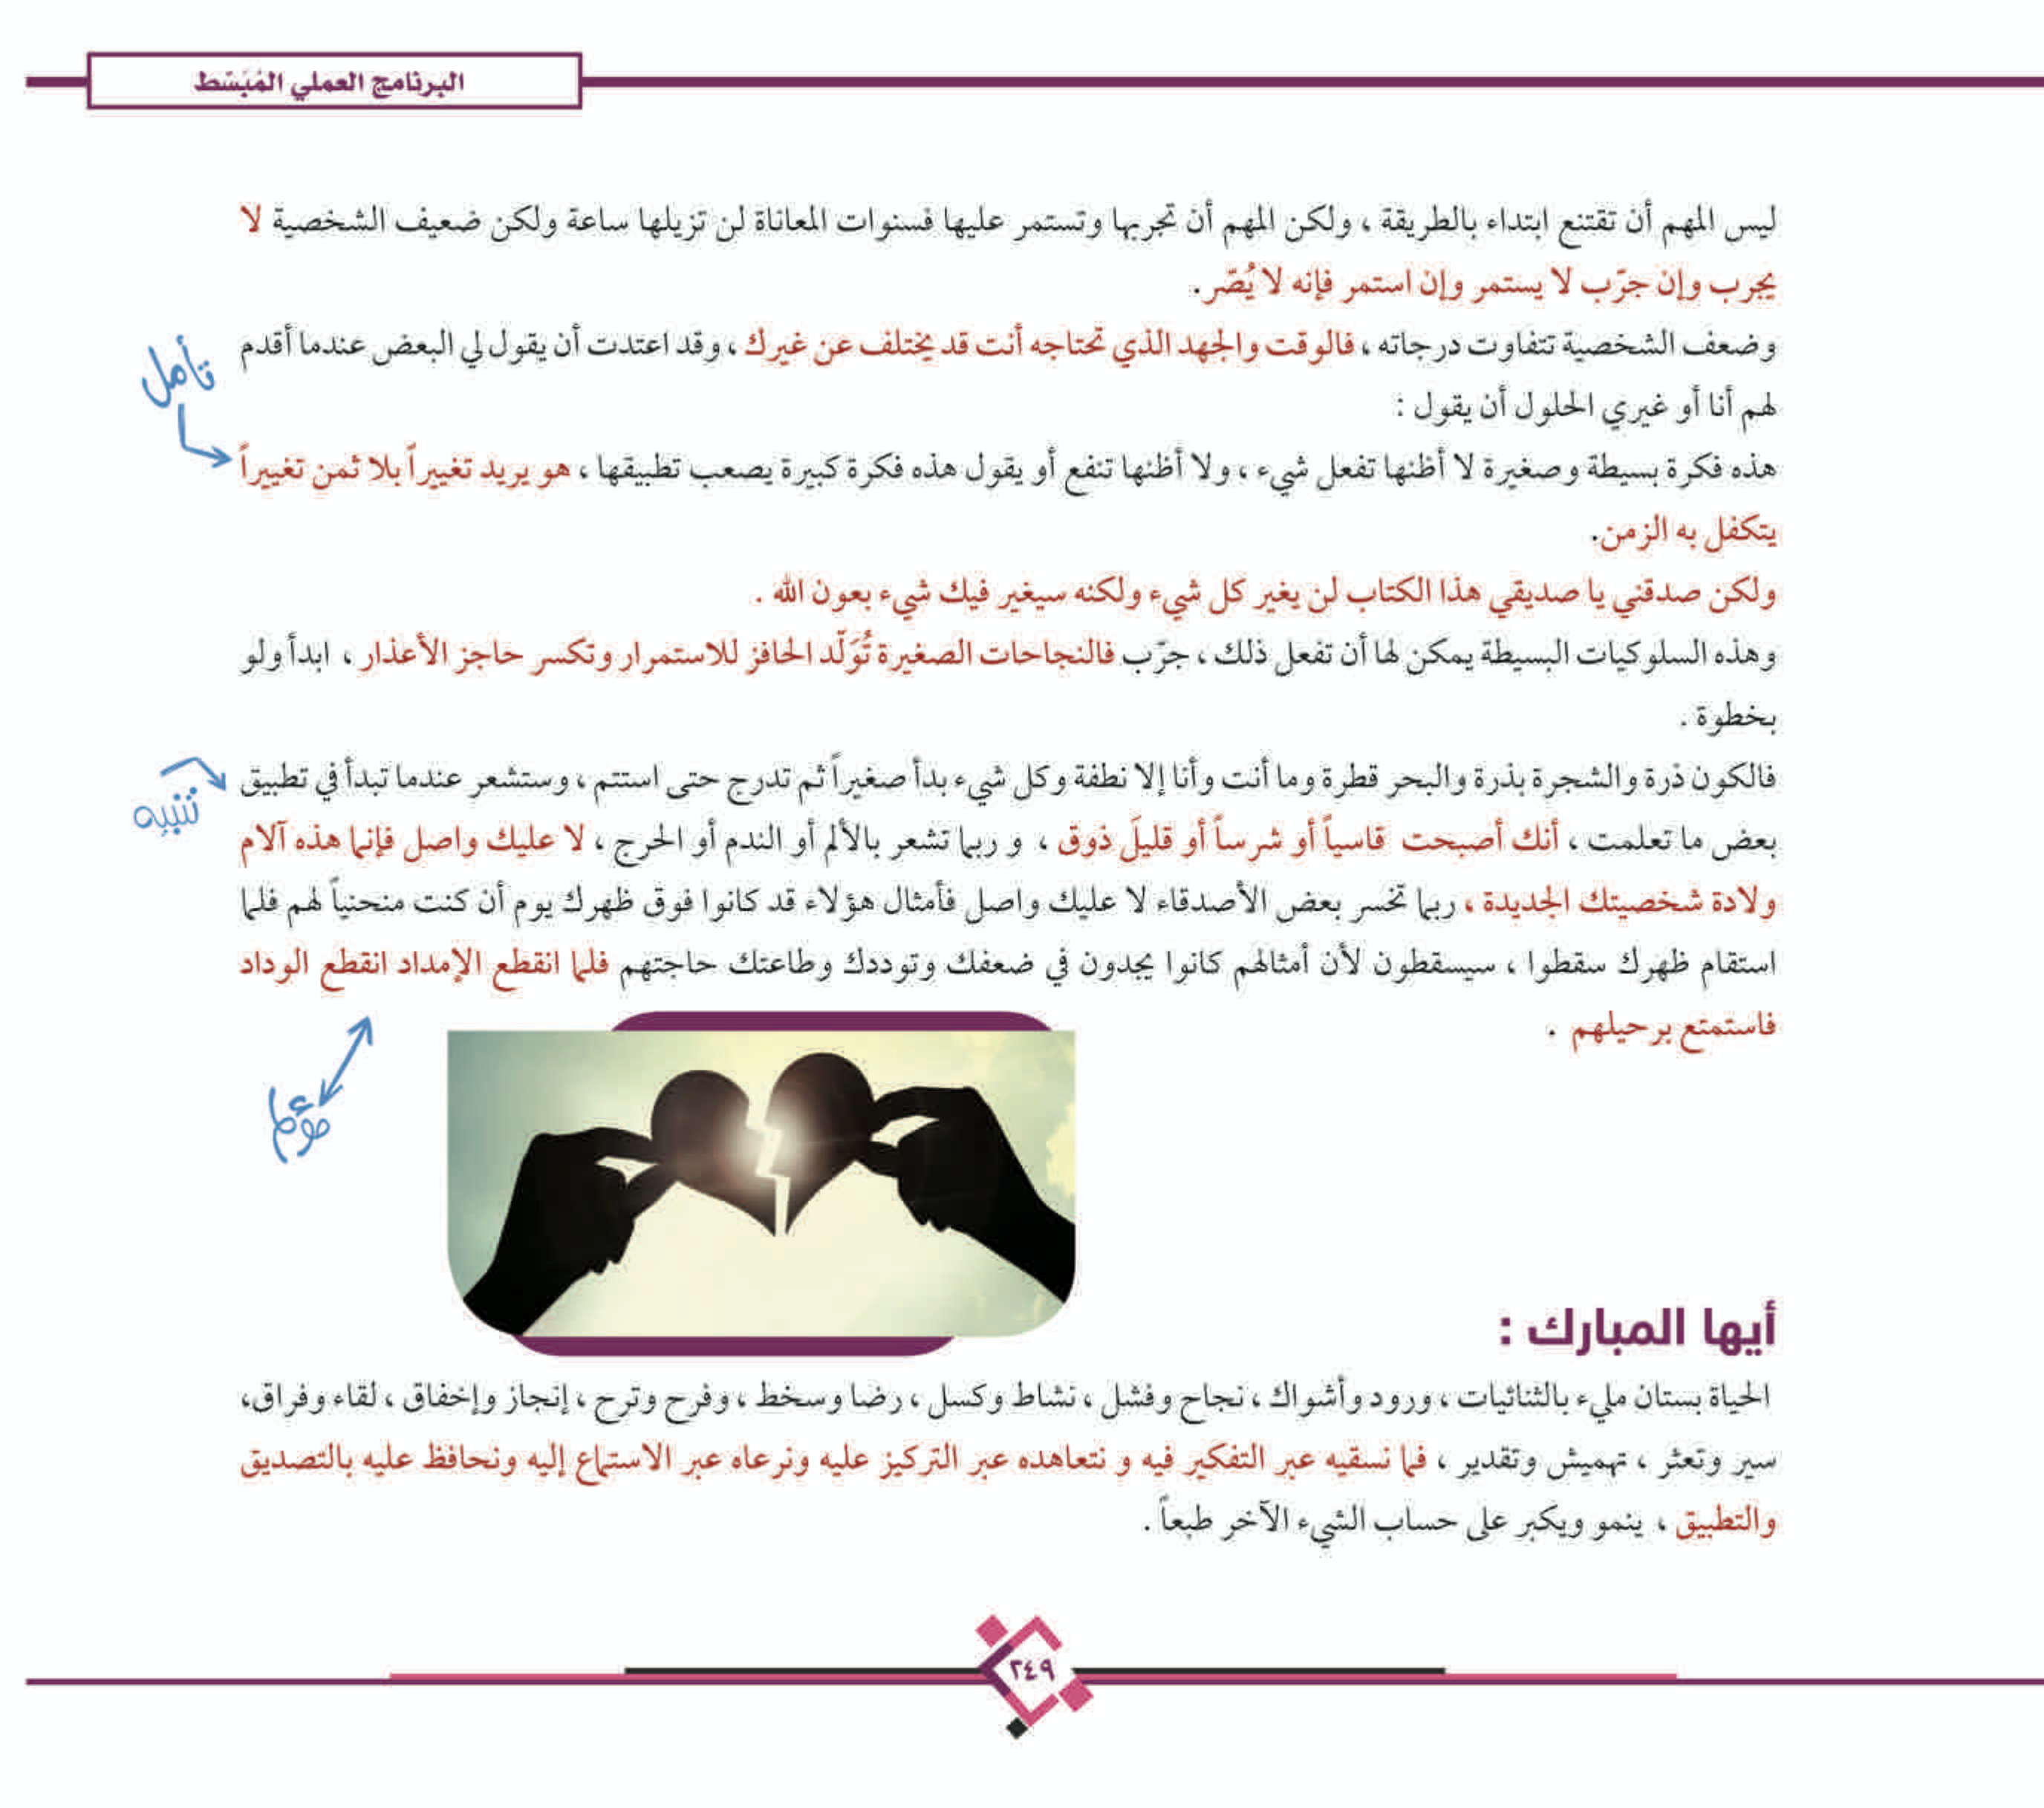 البرنامج العملي المُبَسّط
ليس المهم أن تقتنع ابتداء بالطريقة ، ولكن المهم أن تجربها وتستمر عليها فسنوات المعاناة لن تزيلها ساعة ولكن ضعيف الشخصية لا
يجرب وإن جرّب لا يستمر وإن استمر فإنه لا يُصّر .
وضعف الشخصية تتفاوت درجاته ، فالوقت والجهد الذي تحتاجه أنت قد يختلف عن غيرك ، وقد اعتدت أن يقول لي البعض عندما أقدم
لهم أنا أو غيري الحلول أن يقول :
تأمل
هذه فكرة بسيطة وصغيرة لا أظنها تفعل شيء ، ولا أظنها تنفع أو يقول هذه فكرة كبيرة يصعب تطبيقها ، هو يريد تغييراً بلا ثمن تغييراً
يتكفل به الزمن.
ولكن صدقني يا صديقي هذا الكتاب لن يغير كل شيء ولكنه سيغير فيك شيء بعون الله .
وهذه السلوكيات البسيطة يمكن لها أن تفعل ذلك ، جرّب فالنجاحات الصغيرة تُوَلّد الحافز للاستمرار وتكسر حاجز الأعذار ، ابدأ ولو
بخطوة .
فالكون ذرة والشجرة بذرة والبحر قطرة وما أنت وأنا إلا نطفة وكل شيء بدأ صغيراً ثم تدرج حتى استتم ، وستشعر عندما تبدأ في تطبيق
تنبيه
بعض ما تعلمت ، أنك أصبحت قاسياً أو شرساً أو قليلَ ذوق ، و ربما تشعر بالألم أو الندم أو الحرج ، لا عليك واصل فإنما هذه آلام
ولادة شخصيتك الجديدة ، ربما تخسر بعض الأصدقاء لا عليك واصل فأمثال هؤلاء قد كانوا فوق ظهرك يوم أن كنت منحنياً لهم فلما
استقام ظهرك سقطوا ، سيسقطون لأن أمثالهم كانوا يجدون في ضعفك وتوددك وطاعتك حاجتهم فلما انقطع الإمداد انقطع الوداد
فاستمتع برحيلهم .
أيها المبارك :
الحياة بستان مليء بالثنائيات ، ورود وأشواك ، نجاح وفشل ، نشاط وكسل ، رضا وسخط ، وفرح وترح ، إنجاز وإخفاق ، لقاء وفراق،
سير وتعثر ، تهميش وتقدير ، فما نسقيه عبر التفكير فيه و نتعاهده عبر التركيز عليه ونرعاه عبر الاستماع إليه ونحافظ عليه بالتصديق
والتطبيق ، ينمو ويكبر على حساب الشيء الآخر طبعاً .
٢٤٩